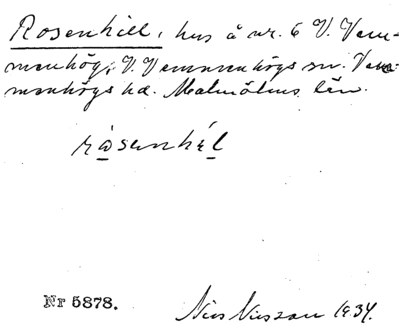 Rosenhill, hus å nr. 6 V. Vem-
menhög, V. Vemmenhögs sn. Vem-
menhögs hd. Malmöhus län.
råsenhél
Nr 5878.
Nils Nilsson 1934.